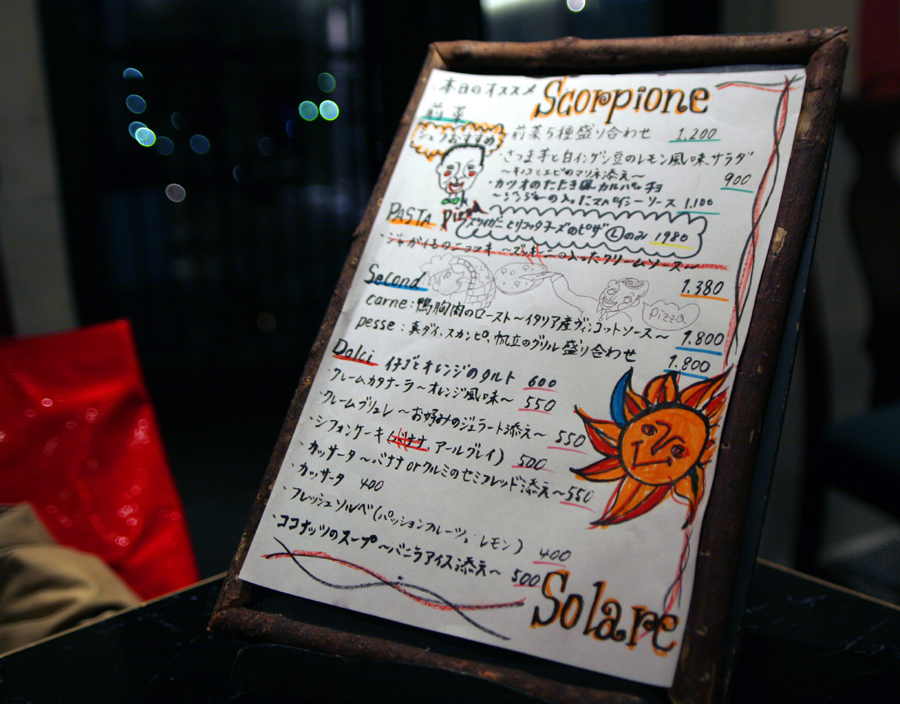 本日のオススメ Scorpione
前菜
シェフおすすめ
前菜5種盛り合わせ 1,200
・さつま芋と白インゲン豆のレモン風味サラダ
～キノコとエビのマリネ添え～ 900
・カツオのたたき風カルパッチョ
～ジンジャーの入ったバルサミコソース 1,100
PASTA
pizza
ズワイガニとリコッタチーズのピザ Ⓛのみ 1980
・ジャガイモのニョッキ ～ズッキーニの入ったクリームソース～
1.380
pizza
Second
carne:鴨胸肉のロースト～イタリア産ヴィンコットソース～ 1.800
pesse:真ダイ、スカンピ、帆立のグリル盛り合わせ 1.800
Dolci
・イチゴとオレンジのタルト 600
・クレームカタナーラ～オレンジ風味～ 550
・クレームブリュレ ～お好みのジェラート添え～ 550
・シフォンケーキ( アールグレイ) 500
・カッサータ～バナナorクルミのセミフレッド添え～550
・カッサータ 400
・フレッシュソルベ(パッションフルーツ、レモン) 400
・ココナッツのスープ ～バニラアイス添え～ 500
Solare